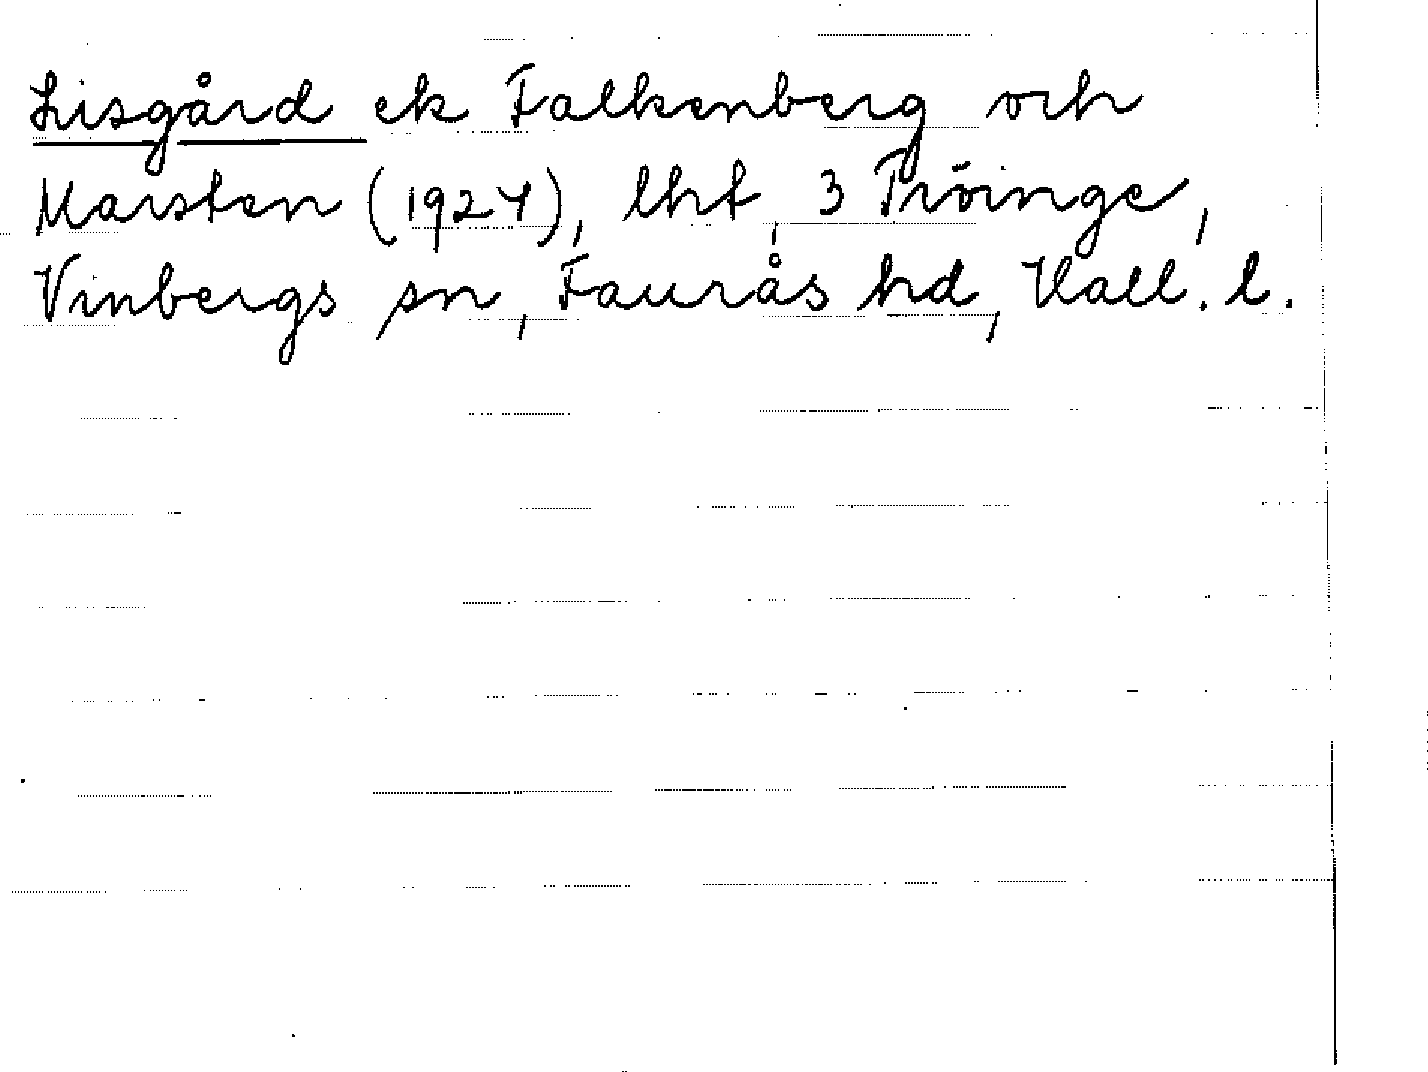 Lisgård ek Falkenberg och
Marsten (1927), lht, 3 Tröinge,
Vinbergs sn, Faurås hd, Hall. l.